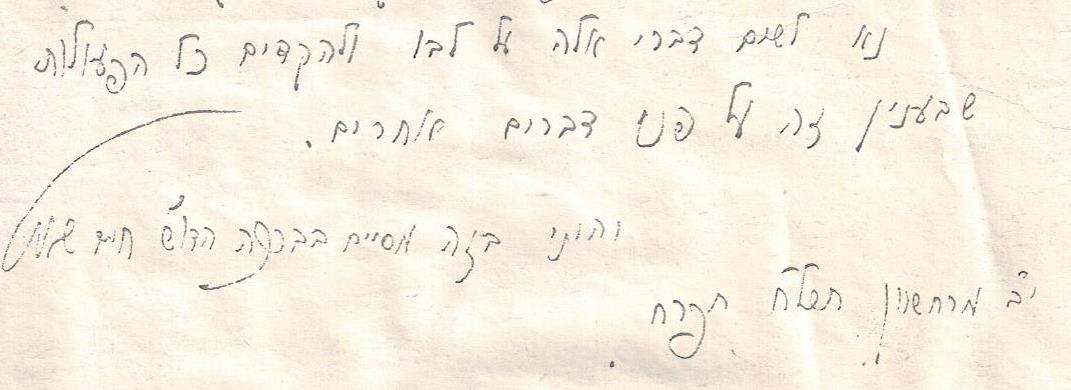 נא לשים דברי אלה על לבו ולהקדים כל הפעולות
שבענין זה על פני דברים אחרים.
והנני בזה מסיים בברכה הדו"ש
י"ב מרחשון תשל"ח